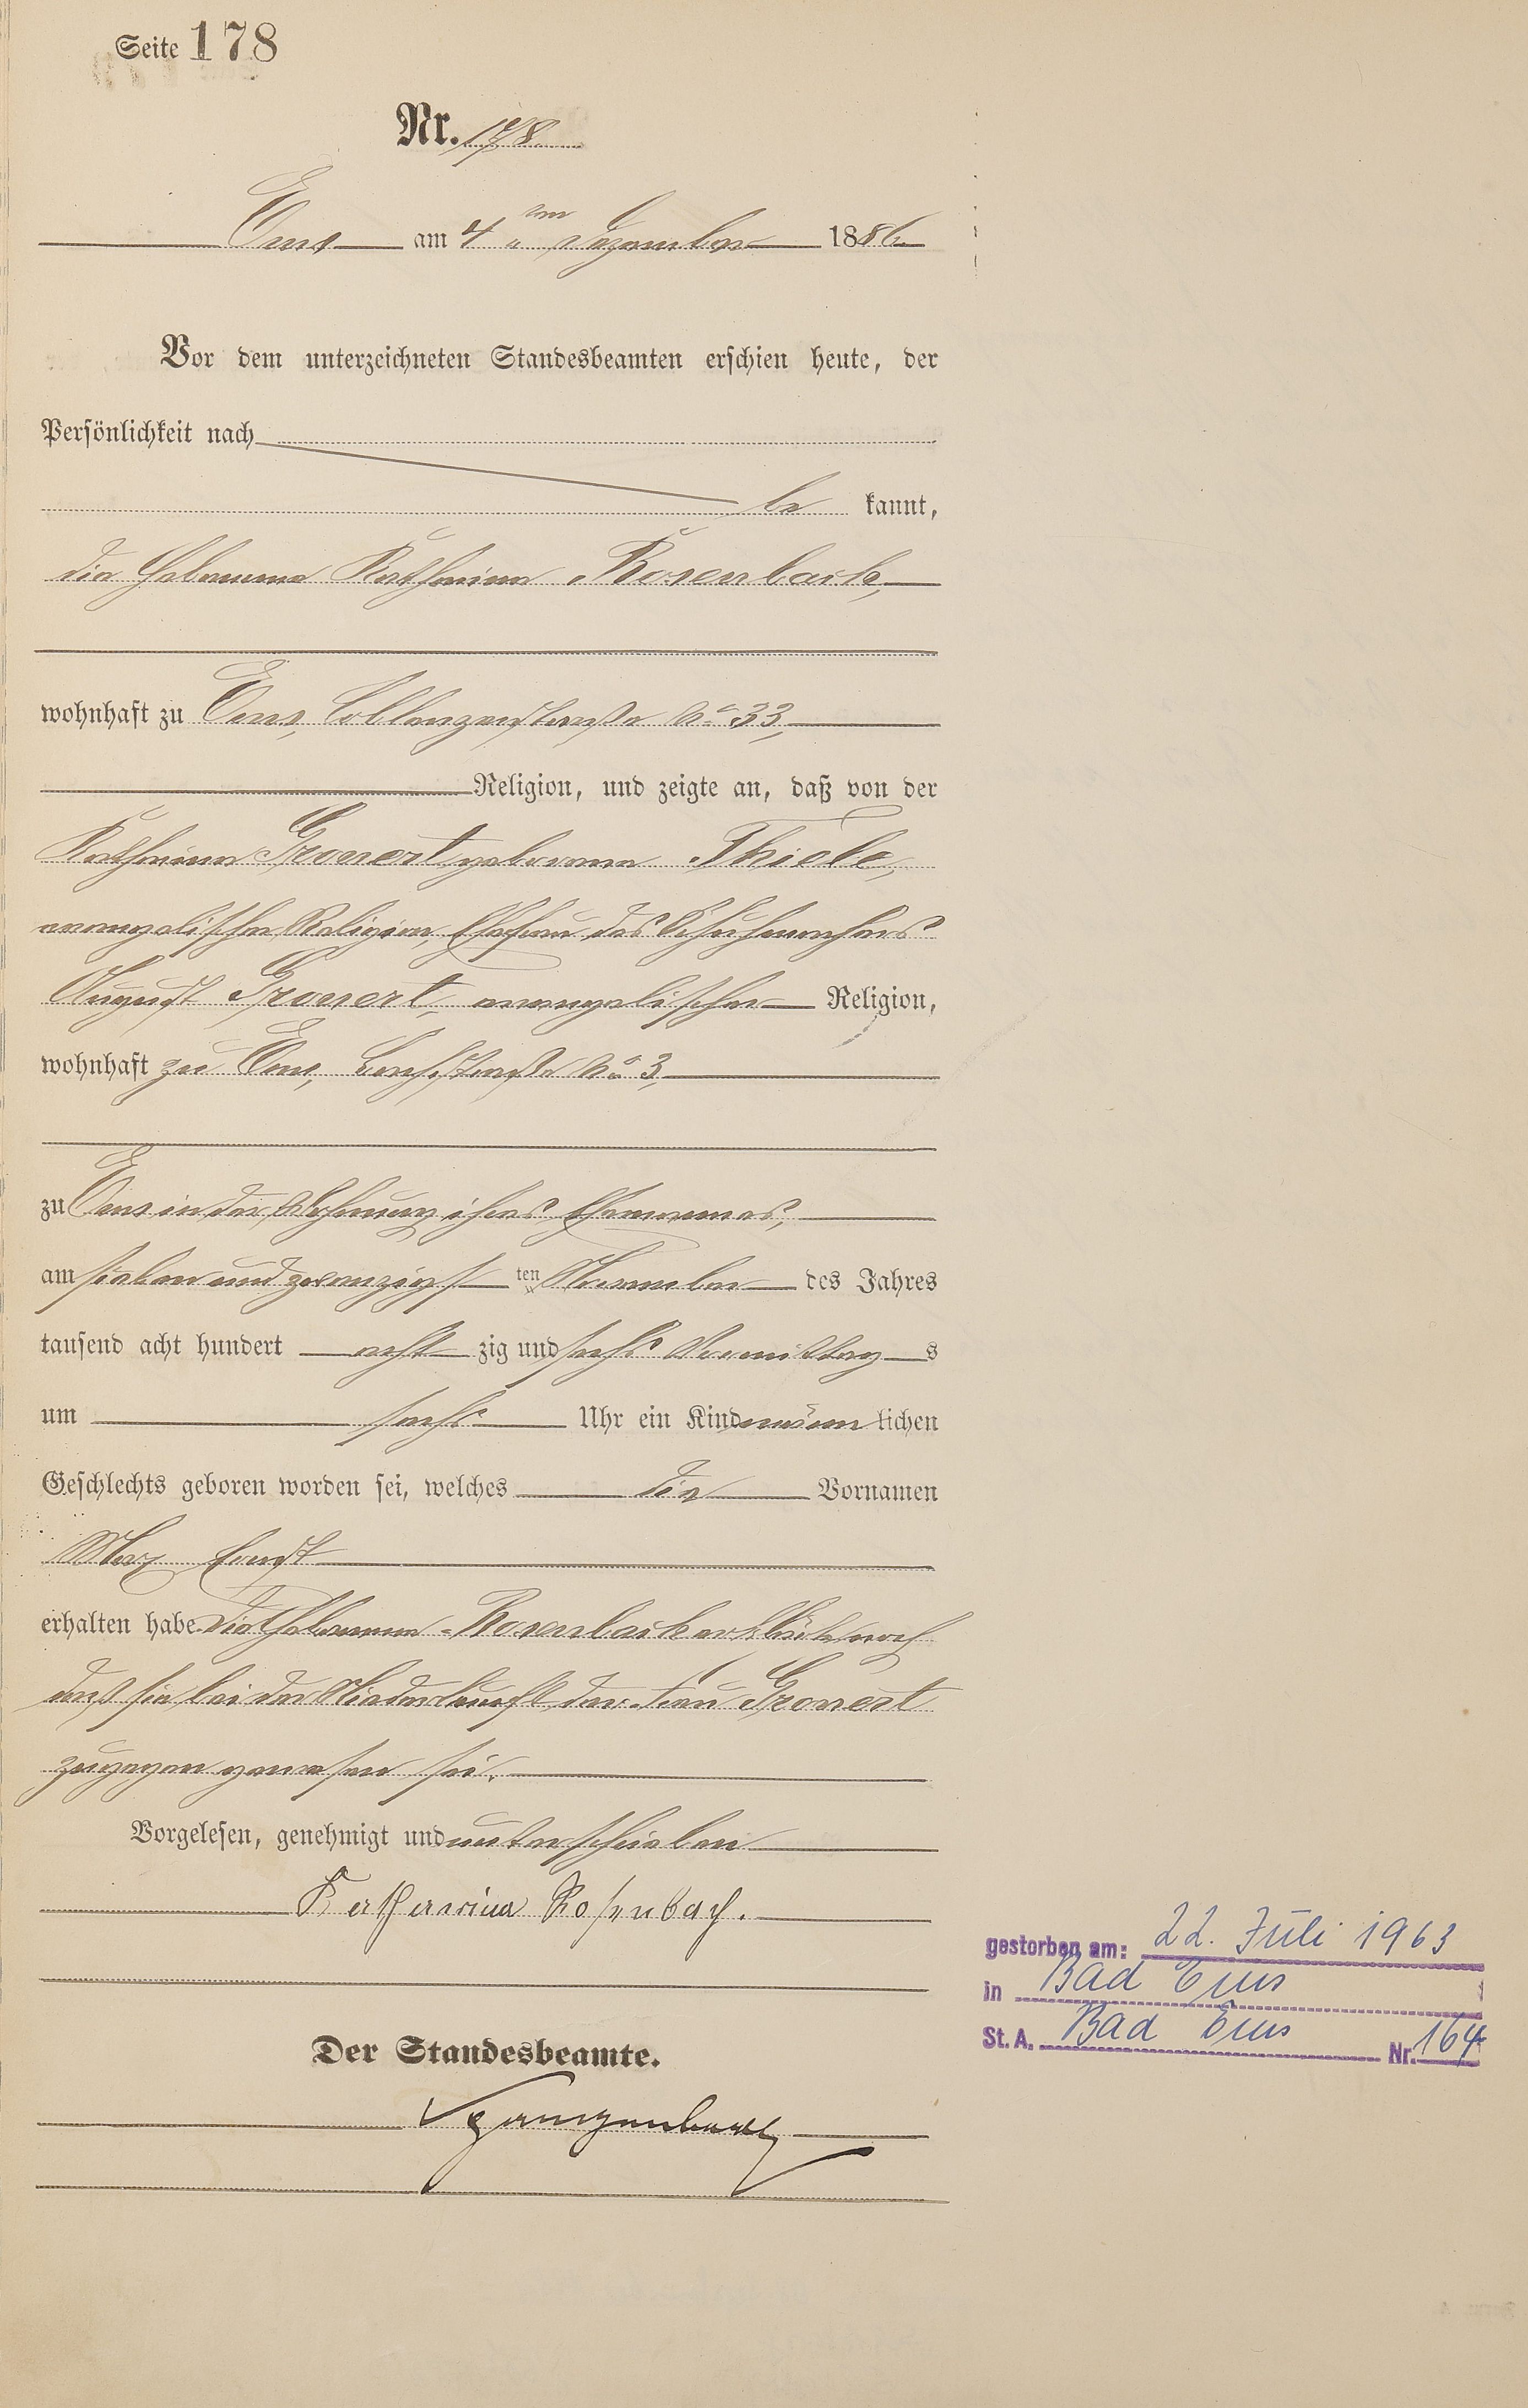 Seite 178
Nr. 178
Ems am 4 ten Dezember 1886
Vor dem unterzeichneten Standesbeamten erschien heute, der
Persönlichkeit nach
be kannt,
die Hebamme Katharina Rosenbach,
wohnhaft zu Ems, Coblenzerstraße No 33,
Religion, und zeigte an, daß von der
Katharina Gronert geborene Thiele,
evangelischer Religion, Ehefrau des Schuhmachers
August Gronert, evangelischer Religion,
wohnhaft zu Ems, straße No 3,
zu Ems in der Wohnung ihres Ehemannes,
am sieben und zwanzigst ten November des Jahres
tausend acht hundert acht zig und sechs Vormittag s
um sechs Uhr ein Kind männ lichen
Geschlechts geboren worden sei, welches die Vornamen
Max Ernst
erhalten habe. Die Hebamme Rosenbach erklärte noch
daß sie bei der Niederkunft der Frau Gronert
zugegen gewesen sei.
Vorgelesen, genehmigt und unterschrieben
Katharina Rosenbach.
Der Standesbeamte.
gestorben am: 22. Juli 1963
in Bad Ems
St. A. Bad Ems Nr. 164